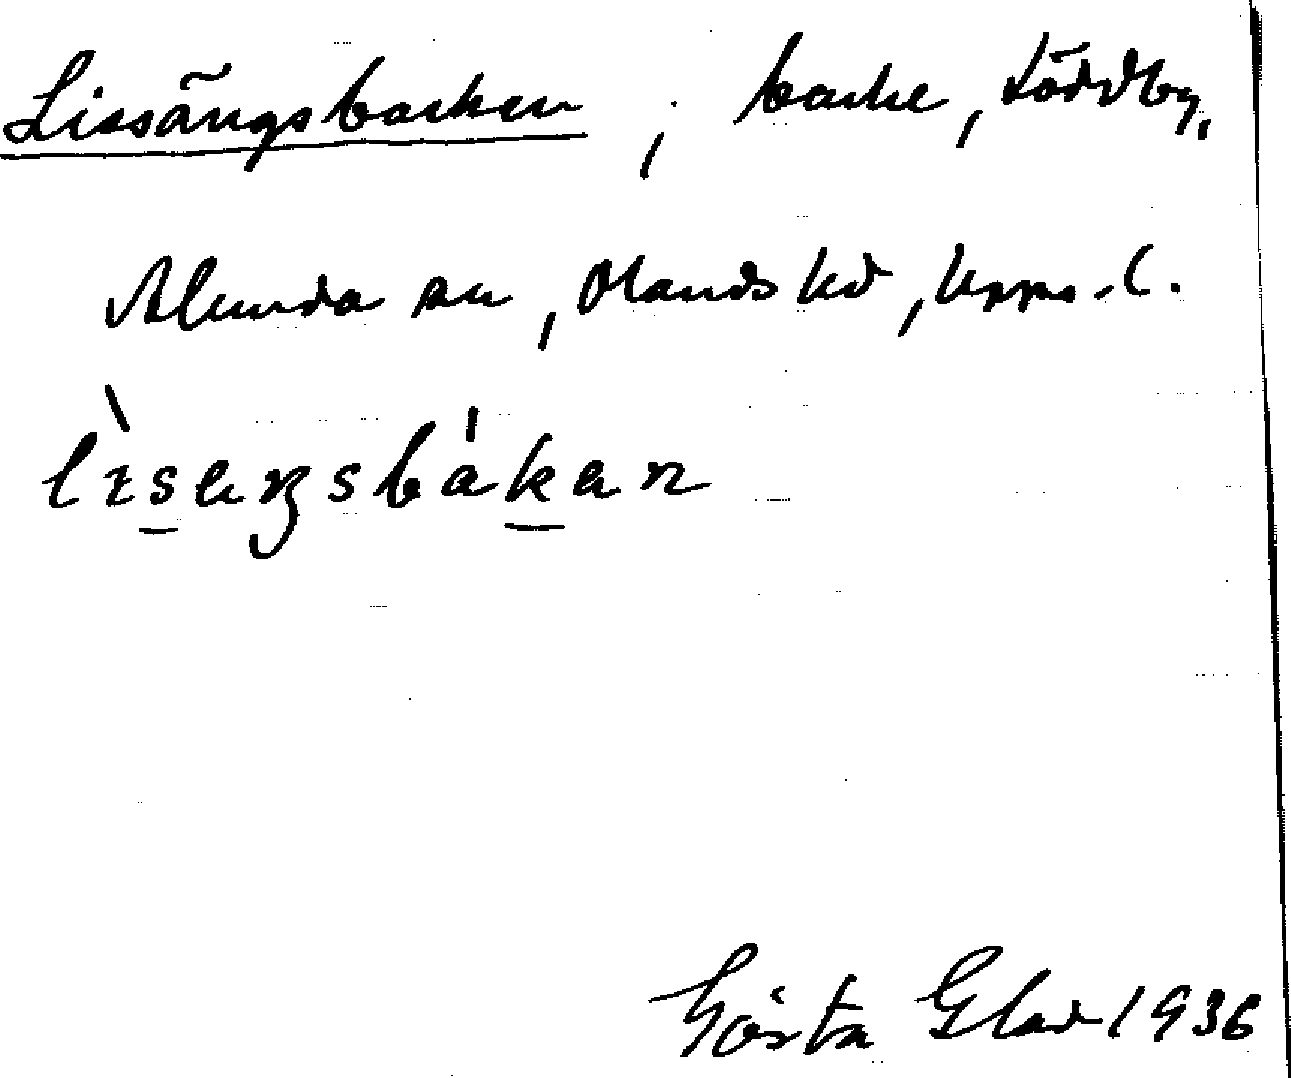 Lissängsbacken, backe, Löddby,
Alunda sn, Olands hd, Upps. l.
lìsaŋsbákan
Gösta Glad 1936